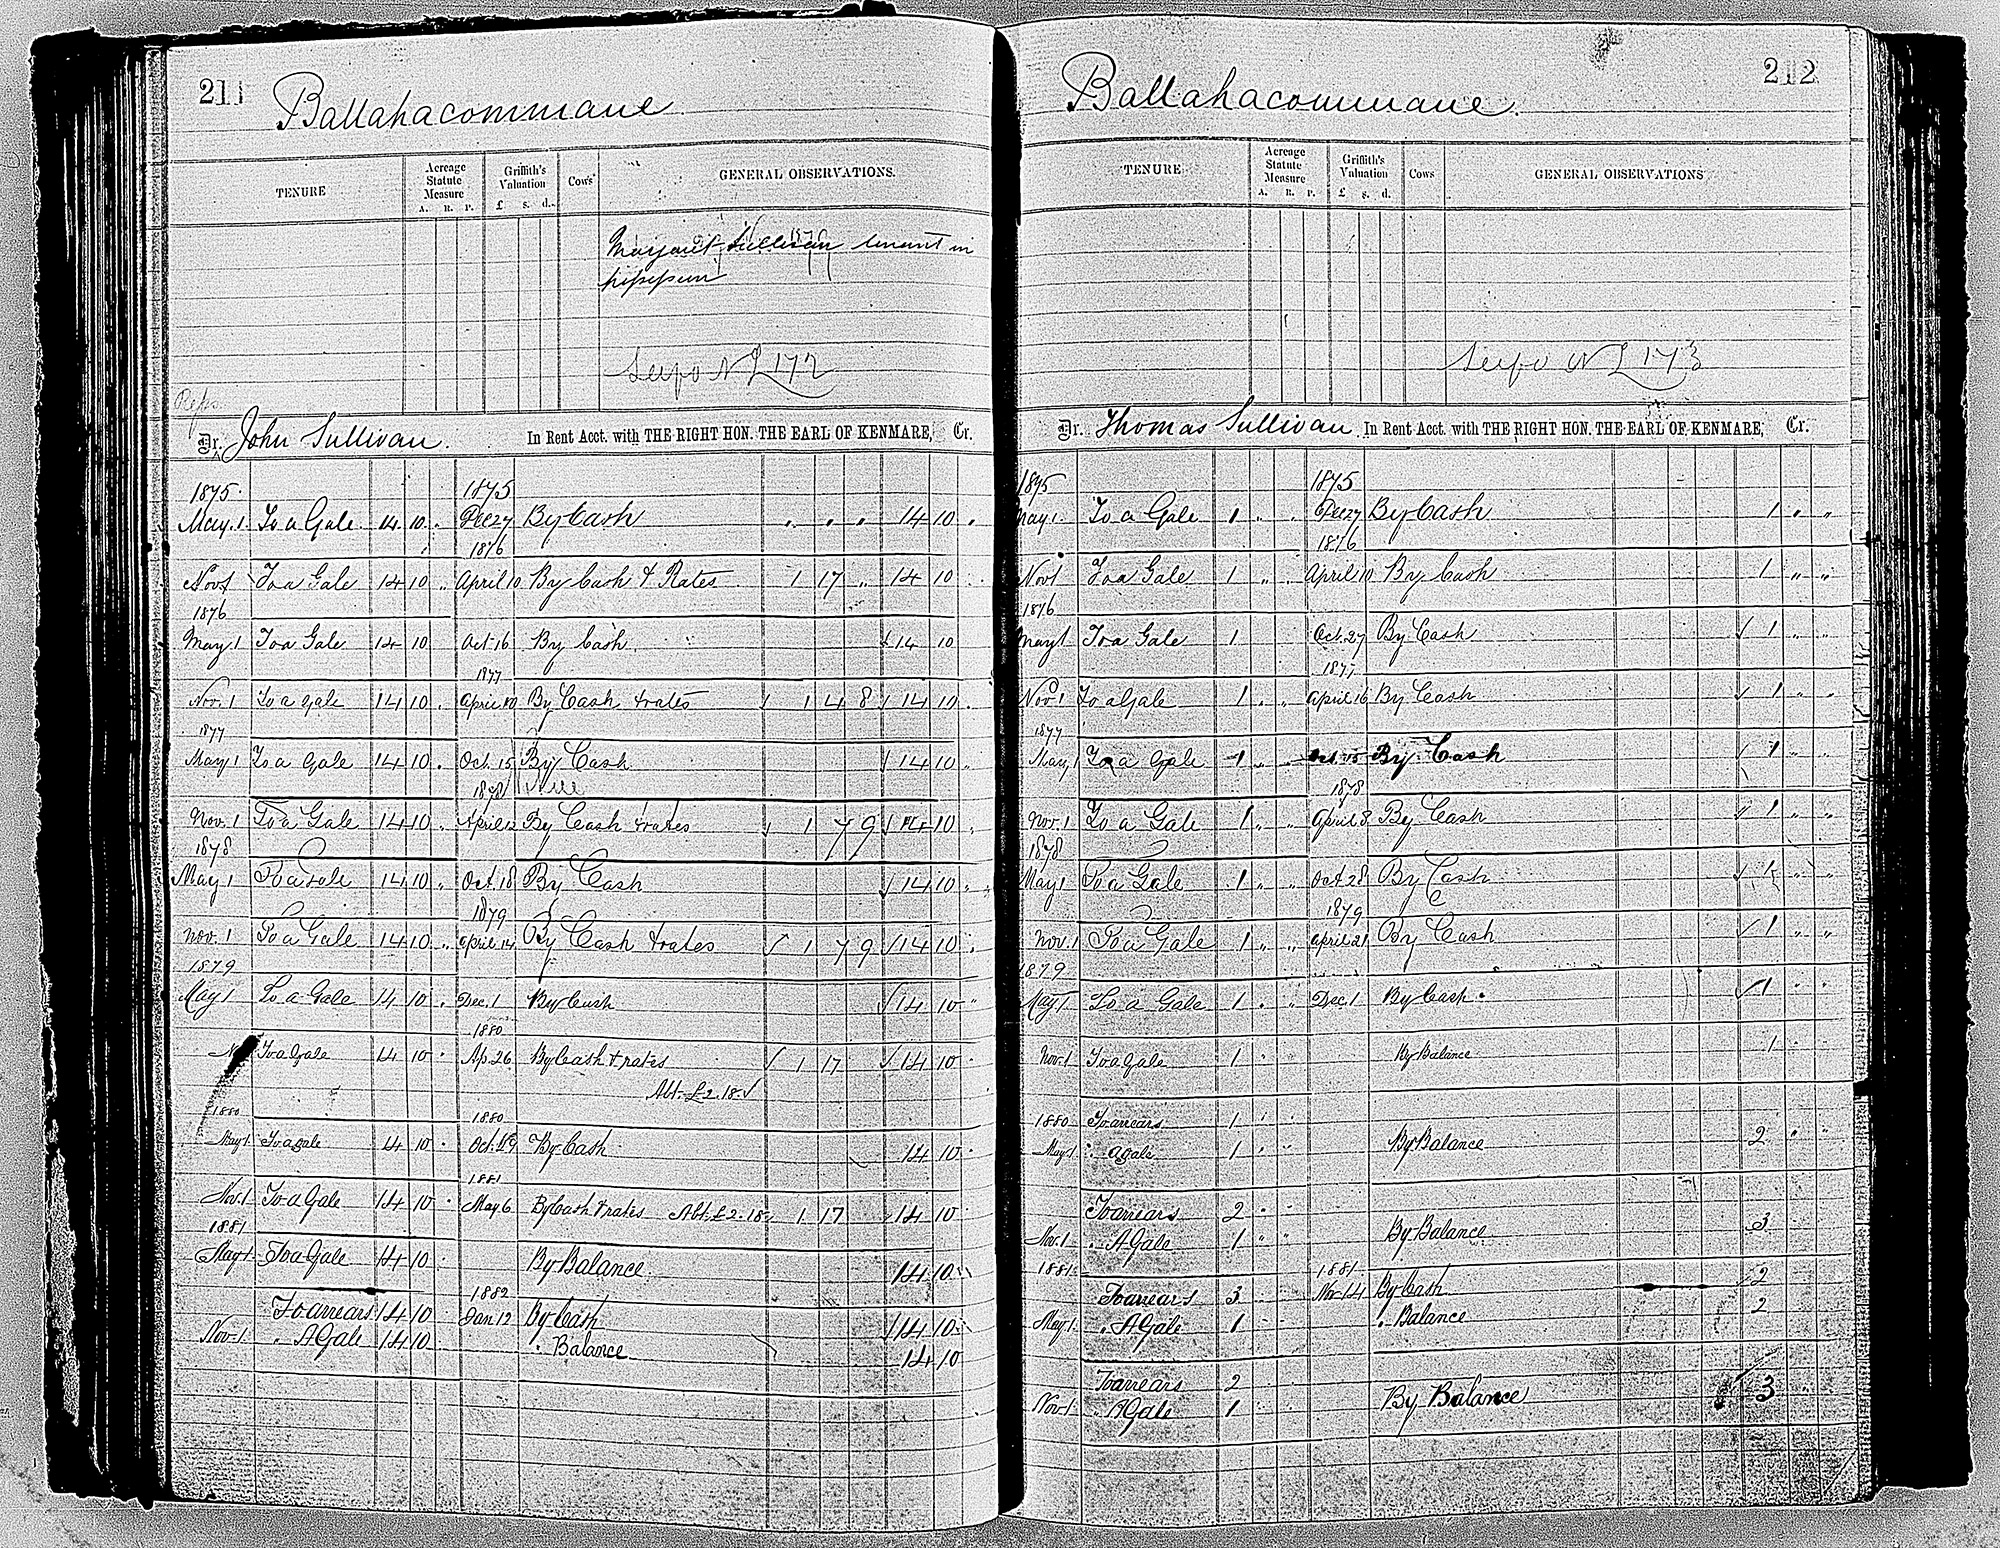 211
Ballahacommane
TENURE
Acreage Statute Measure
A. R. P.
Griffith's Valuation
£ s. d.
Cows
GENERAL OBSERVATIONS.
Margaret Sullivan tenant in
See fo N L 172
Reps
Dr. John Sullivan. In Rent Acct. with THE RIGHT HON. THE EARL OF KENMARE, Cr.
1875. 1875
May. 1 To a Gale 14 10 " Dec 27 By Cash " " " 14 10 "
1876
Nov 1 To a Gale 14 10 " April 10 By Cash & Rates 1 17 " 14 10 "
1876
May 1 To a Gale 14 10 Oct 16 By Cash √ 14 10
1877
Nov. 1 To a Gale 14 10 " April 10 By Cash & rates √ 1 4 8 √ 14 10 "
1877
May 1 To a Gale 14 10 " Oct. 15 By Cash √ 14 10 "
1878
Nov. 1 To a Gale 14 10 " April 12 By Cash & rates √ 1 7 9 √ 14 10 "
1878
May 1 To a Gale 14 10 " Oct. 18 By Cash √ 14 10 "
1879
Nov. 1 To a Gale 14 10 " April 14 By Cash & rates √ 1 7 9 √ 14 10 "
1879
May 1 To a Gale 14 10 " Dec. 1 By Cash √ 14 10 "
1880
To a Gale 14 10 " Ap. 26 By Cash & rates √ 1 17 √ 14 10 "
Abt. £2.18. √
1880 1880
May 1. To a gale 14 10 " Oct. By Cash 14 10 "
1881
Nov. 1 To a Gale 14 10 " May 6 By Cash & rates Abt. £2.18 √ 1 17 √ 14 10 "
1881
May 1. To a Gale 14 10 By Balance 14 10 "
1882
To arrears 14 10 Jan 12 By Cash √ 14 10 "
Nov. 1 " A Gale 14 10 " Balance 14 10
212
Ballahacommane.
TENURE
Acreage Statute Measure
A. R. P.
Griffith's Valuation
£ s. d.
Cows
GENERAL OBSERVATIONS
See fo N L 173
Dr. Thomas Sullivan In Rent Acct. with THE RIGHT HON. THE EARL OF KENMARE, Cr.
1875 1875
May 1. To a Gale 1 " " Dec 27 By Cash 1 " "
1876
Nov 1 To a Gale 1 " " April 10 By Cash 1 " "
1876
May 1 To a Gale 1 Oct. 27 By Cash √ 1 " "
1877
Nov. 1 To a Gale 1 " " April 16 By Cash √ 1 " "
1877
May 1 To a Gale 1 " " Oct 15 By Cash √ 1 " "
1878
Nov. 1 To a Gale 1 " " April 8 By Cash √ 1 " "
1878
May 1 To a Gale 1 " " Oct 28 By Cash √ 1 " "
1879
Nov. 1 To a Gale 1 " " April 21 By Cash √ 1 " "
1879
May 1 To a Gale 1 " " Dec. 1 By Cash. √ 1 " "
Nov. 1 To a gale 1 " By Balance 1 "
1880 To arrears 1 " "
May 1 " a gale 1 " " By Balance 2 " "
To arrears 2 " "
Nov. 1 " A Gale 1 " " By Balance 3
1881 1881
To arrears 3 " Nov 14 By Cash √ 2
May 1 " A Gale 1 " " Balance 2
To arrears 2 " "
Nov. 1 " A Gale 1 " " By Balance 3